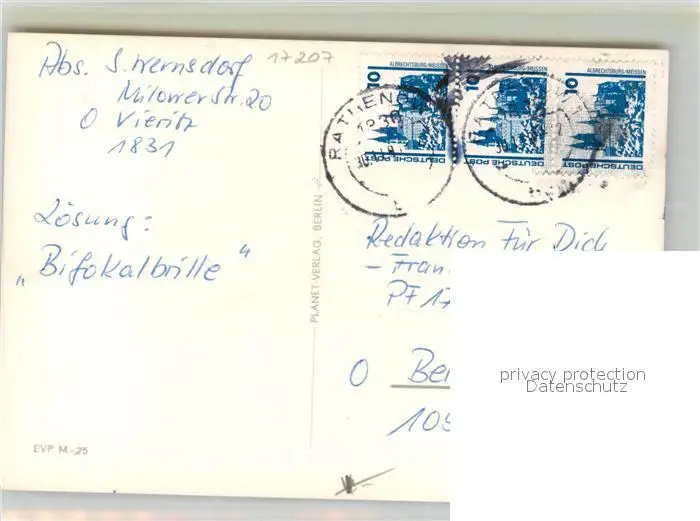 Abs. S. Wernsdorf
17207
Milower Str. 20
O Vieritz
1831
Lösung:
„Bifokalbrille"
EVP M -,25
PLANET-VERLAG, BERLIN
ALBRECHTSBURG/MEISSEN
10
DEUTSCHE POST
ALBRECHTSBURG/MEISSEN
10
DEUTSCHE POST
ALBRECHTSBURG/MEISSEN
10
DEUTSCHE POST
RATHENOW
1830
Redaktion Für Dich
PF 17
O
privacy protection
Datenschutz